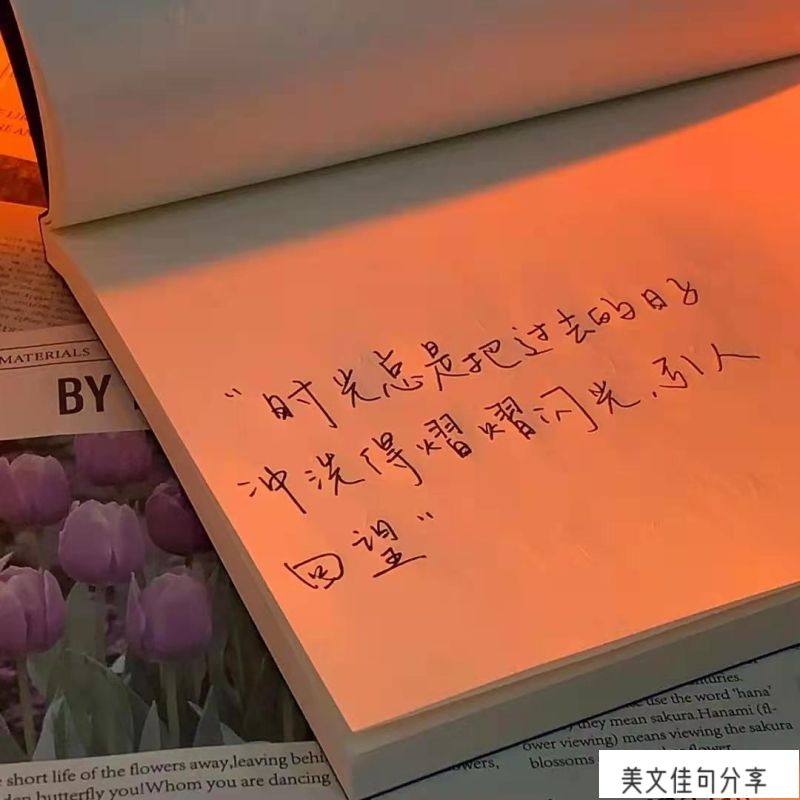 MATERIALS
BY
“时光总是把过去的日子
冲洗得熠熠闪光，引人
回望”
short life of the flowers away,leaving behi
butterfly you!Whom you are dancing
use the word 'hana'
they mean sakura.Hanami (fl-
ower viewing) means viewing the sakura
blossoms
美文佳句分享